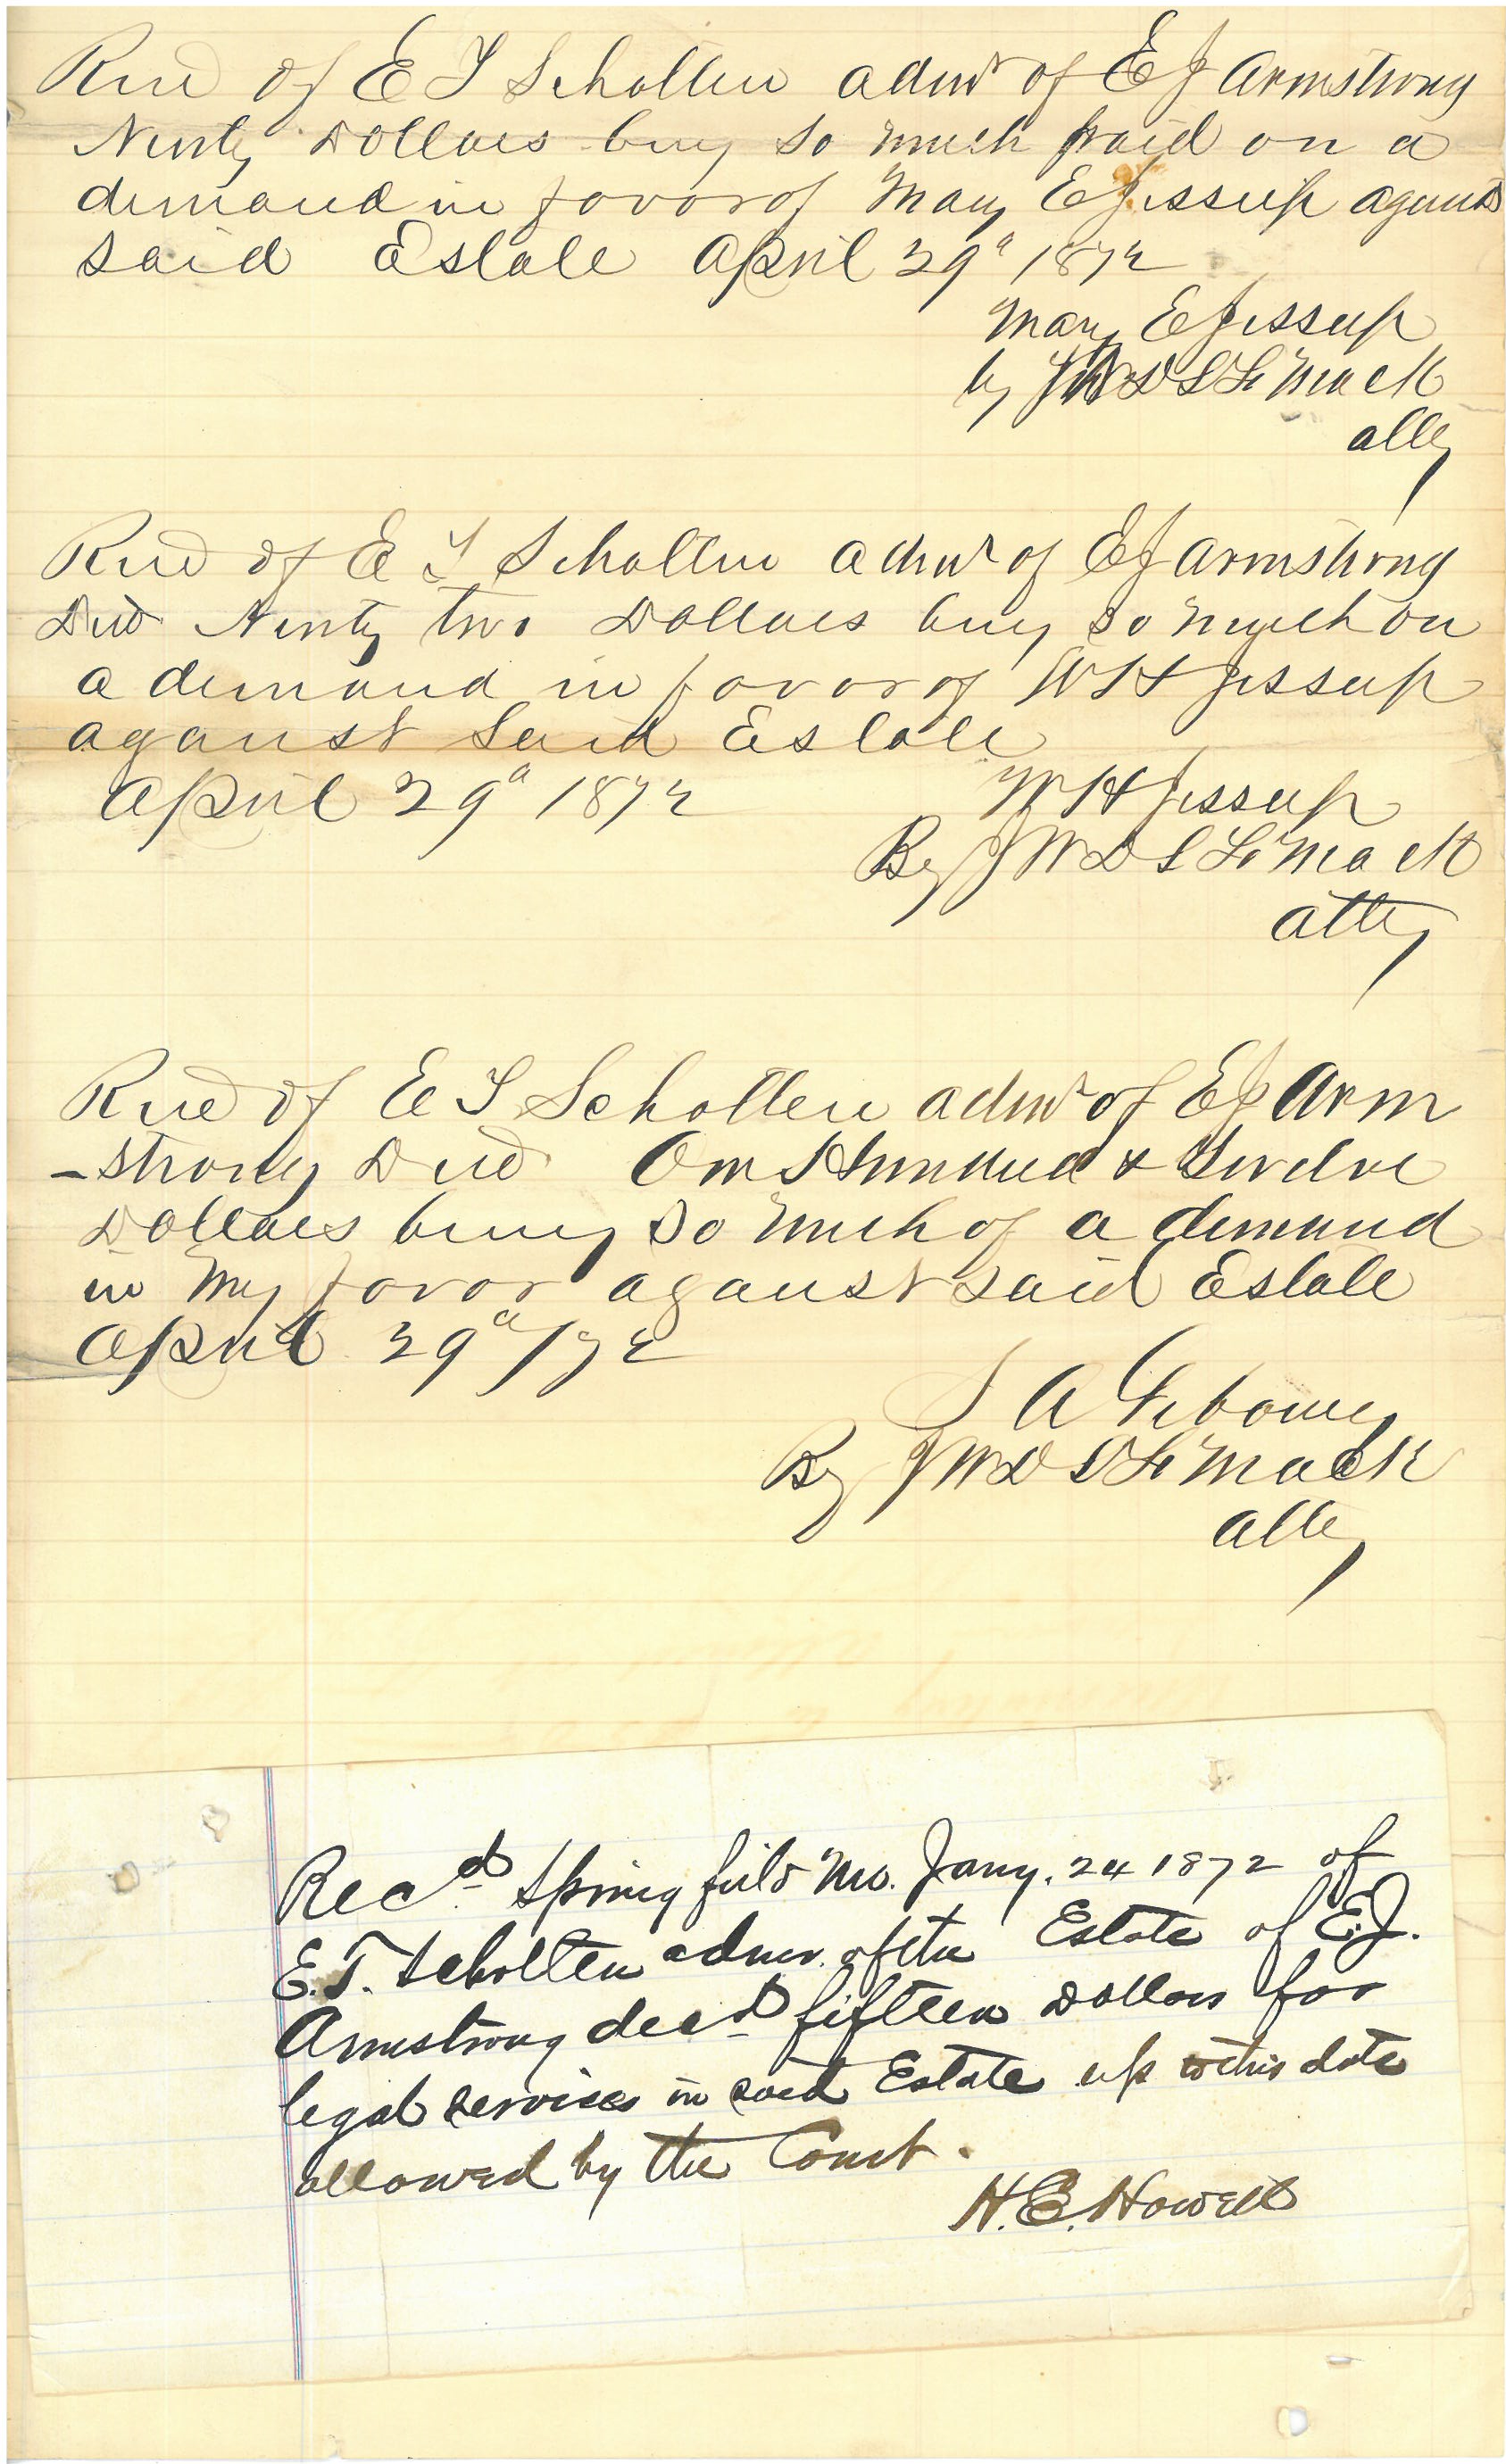 Recd of E T Scholten admr of E J Armstrong
Ninty Dollars being so much paid on a
demand in favor of Mary E Jessup against
said Estate April 29th 1872
Mary E Jessup
by JWD L F Mack
atty
Recd of E T Scholten admr of E J Armstrong
Decd Ninty two Dollars being so much on
a demand in favor of W H Jessup
against Said Estate
April 29th 1872
W H Jessup
By JWD L F Mack
atty
Recd of E T Scholten admr of E J Arm
-strong Decd One Hundred & Twelve
Dollars being so much of a demand
in my favor against said Estate
April 29th/72
S A
By JWD L F Mack
atty
Recd. Springfield Mo. Jany. 24 1872 of
E.T. Scholten admr. of the Estate of E.J.
Armstrong decd fifteen Dollars for
legal services in said Estate up to this date
allowed by the Court.
H.E. Howell